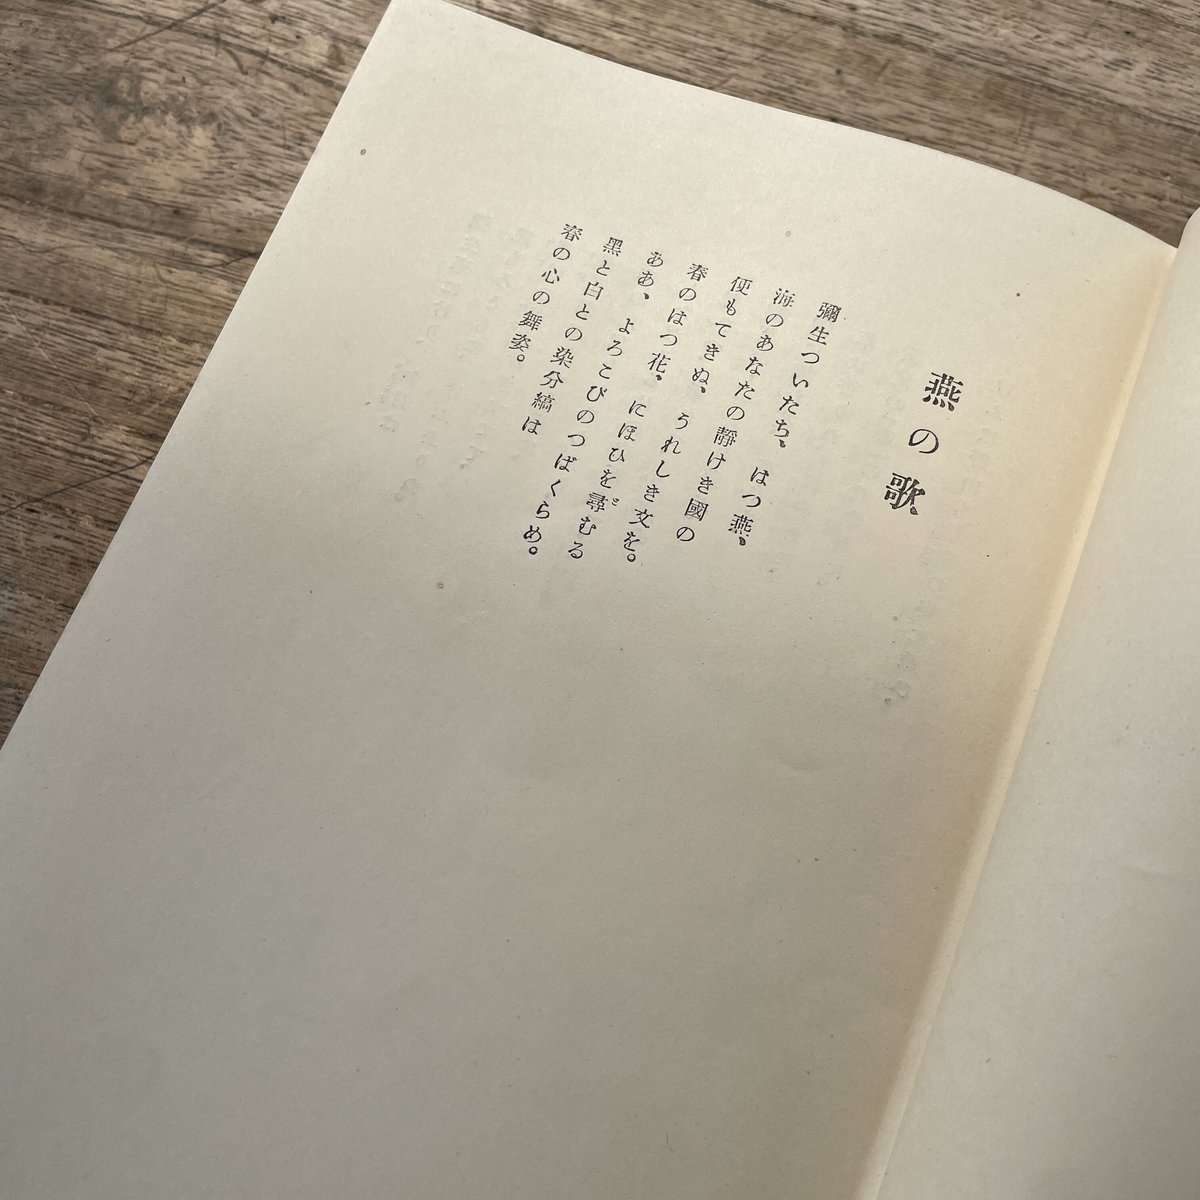 燕の歌
彌生ついたち、はつ燕、
海のあなたの靜けき國の
便もてきぬ、うれしき文を。
春のはつ花、にほひを尋むる
ああ、よろこびのつばくらめ。
黑と白との染分縞は
春の心の舞姿。